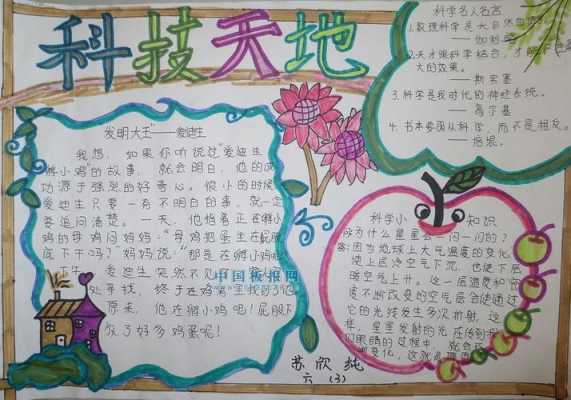 科技天地
科学名人名言
1.数理科学是大自然
——伽利略
2.天才跟科学结合，才能
大的效果。
——斯宾塞
3.科学是我时代的神经系统。
——高尔基
4.书本要跟从科学，而不是相反。
——培根。
发明大王——爱迪生
我想，如果你听说过"爱迪生
孵小鸡"的故事，就会明白，他的成
功源于强烈的好奇心。很小的时候
爱迪生只要一有不明白的事，就一定
要追问清楚。一天，他指着正在孵小
鸡的母鸡问妈妈："母鸡把蛋坐在屁股
底下干吗？"妈妈说："那是在孵小鸡呢
下午，爱迪生突然不见了，
处寻找，终于在鸡窝里找到了他
原来，他在孵小鸡呢！屁股下
放了好多鸡蛋呢！
中国板报网
科学小知识
为什么星星会一闪一闪的？
答：因为地球上大气温度的变化，
使上层冷空气下沉，也使下层
暖空气上升。这一层温度和密
度不断改变的空气层会使通过
它的光线发生多次折射，这
样，星星发射的光在传到
们眼睛的过程中，就会
变化，这就
苏欣纯
六（3）